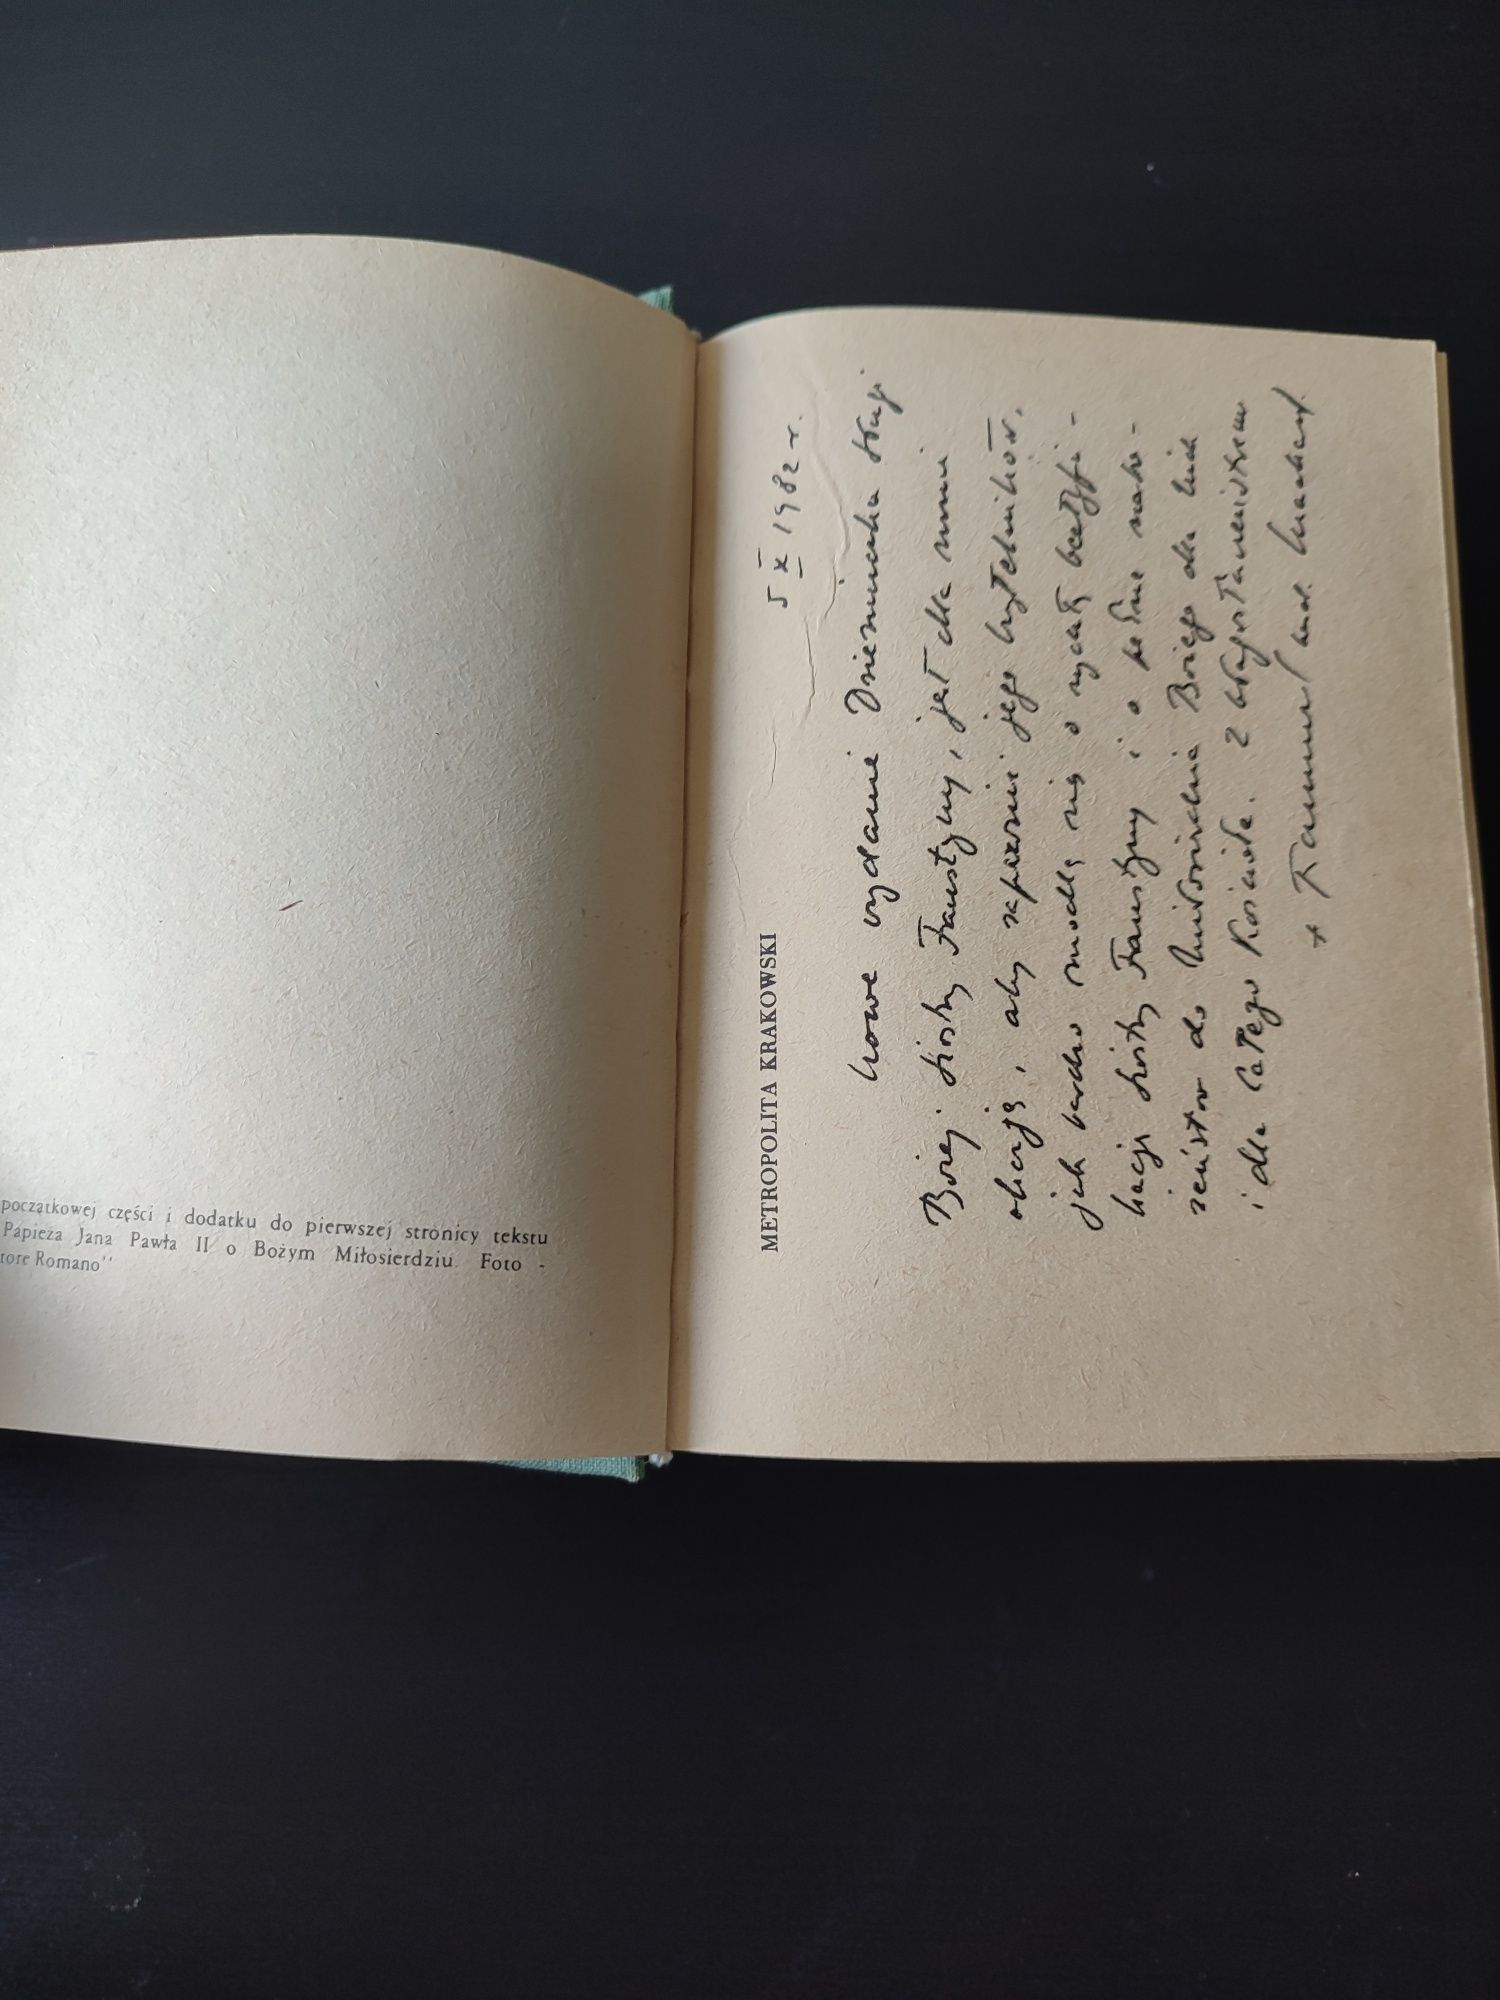 początkowej części i dodatku do pierwszej stronicy tekstu
Papieża Jana Pawła II o Bożym Miłosierdziu. Foto -
tore Romano"
METROPOLITA KRAKOWSKI
5 X 1982 r.
Nowe wydanie Dzienniczka Sługi
Bożej Siostry Faustyny, jest dla mnie
okazją, aby zapewnić jego czytelników,
jak bardzo modlę się o rychłą beatyfi-
kację Siostry Faustyny i o pełne nabo-
żeństw do Miłosierdzia Bożego dla nich
i dla całego Kościoła. Z błogosławieństwem
+ Franciszek kard. Macharski